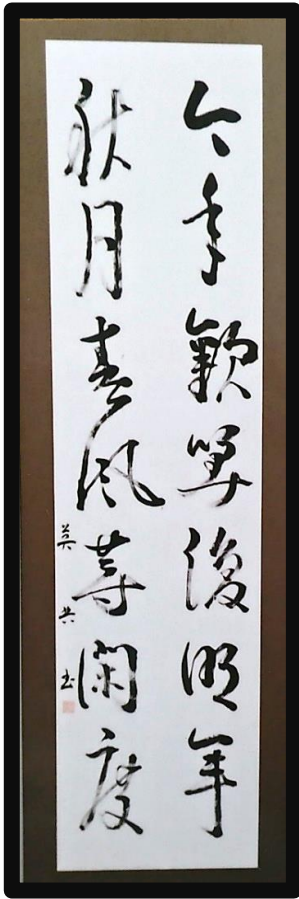 今年歡笑復明年
秋月春風等閑度